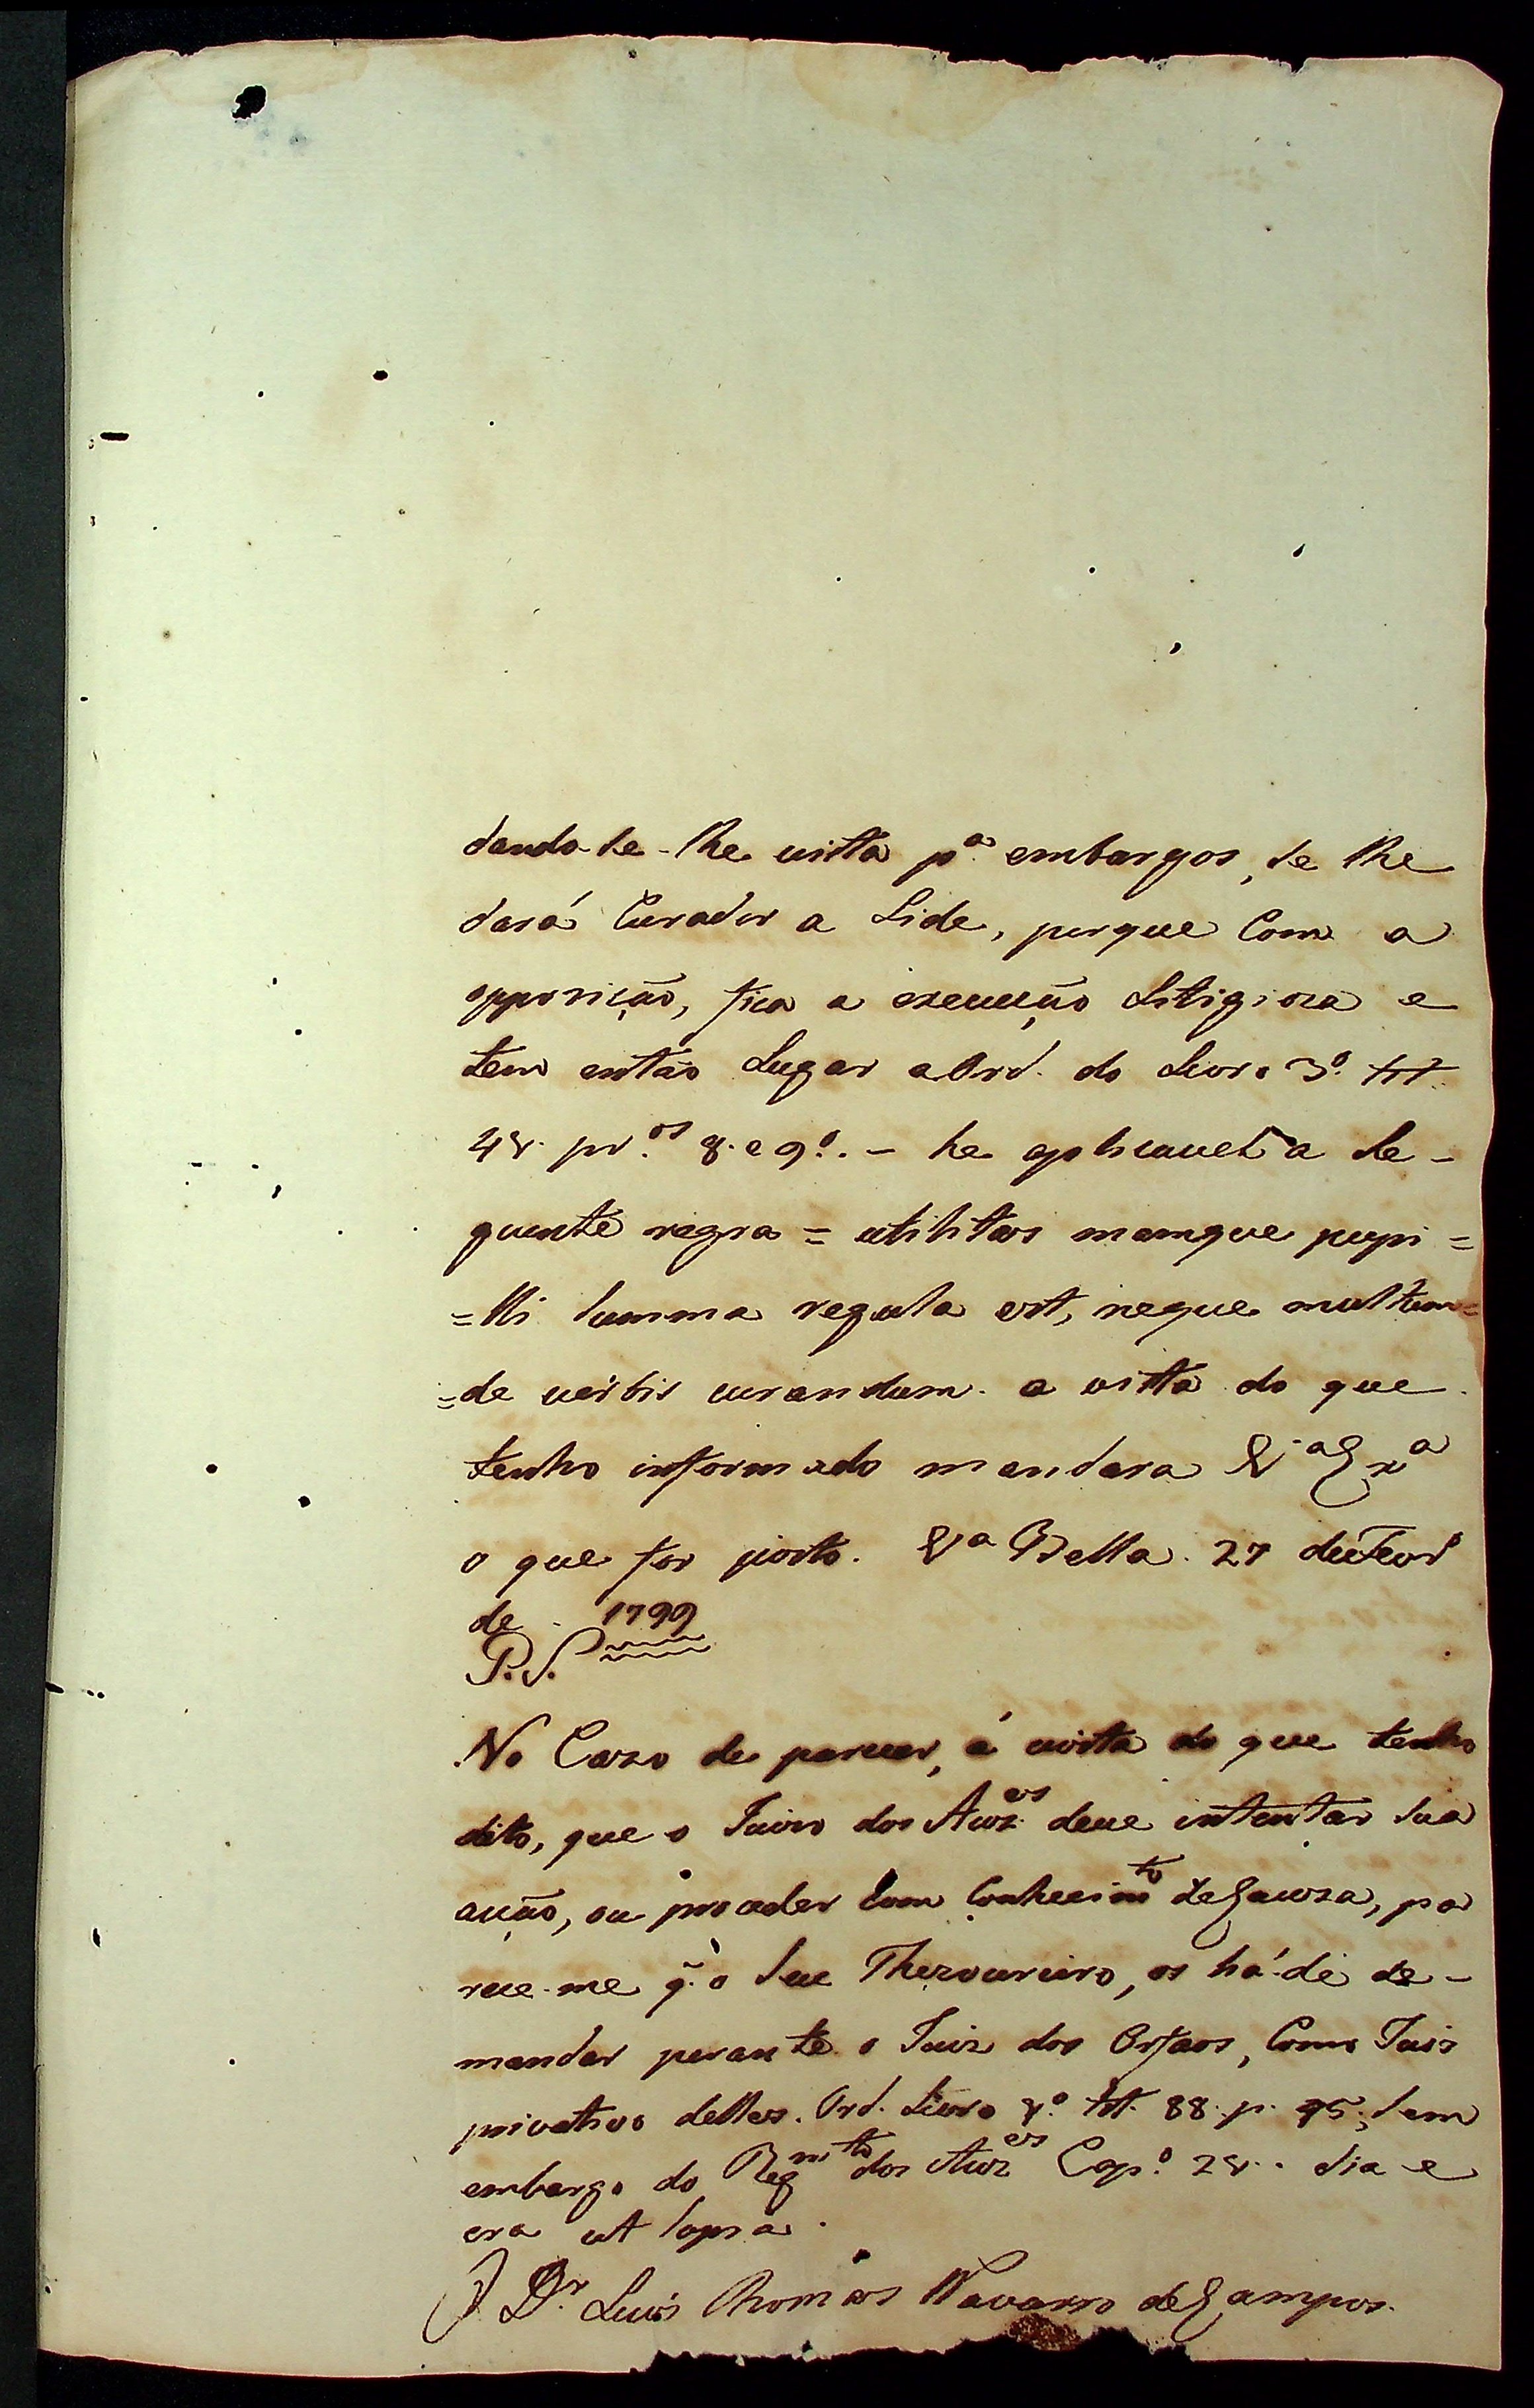 dando-se-lhe vista p.ª embargos, se lhe
dará Curador a Lide, porque Com a
opposição, fica a execução Litigioza e
tem então Lugar a Ord. do Livro 3º. tit.
41. pr.os 8. e 9º. - he aplicavel a se-
guinte regra = utilitas namque pupi=
=lli summa regula est, neque multum=
=de verbis curandum. a vista do que
tenho informado mandara V.ª Exª
o que for justo. Vª Bella. 27 de Fevr
de 1799
P.S.
No Cazo de parecer, á vista do que tenho
dito, que o Juizo dos Auz.es deve intentar sua
acção, ou proceder Com Conhecim.to de Cauza, pa
rece-me q̃ o seu Thezoureiro, os há-de de-
mandar perante o Juiz dos Orfaos, Como Juiz
privativo delles. Ord. Livro 1º. tit. 88. p. 45; sem
embargo do Regm.to dos Auz.es Cap.º 21. dia e
era ut supra.
O Dr. Luis Thomas Navarro de Campos.